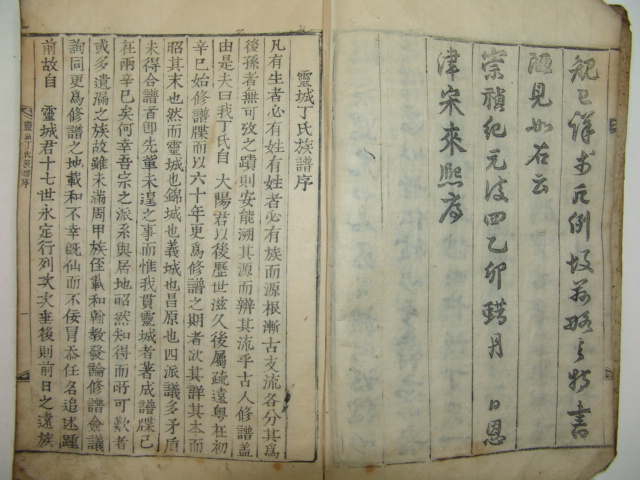 規已詳於凡例故前略之特書
陋見如右云
崇禎紀元後四乙卯 月 日恩
津宋來熙序
靈城丁氏族譜序
凡有生者必有姓有姓者必有族而源根漸古支流各分其爲
後孫者無可攷之蹟則安能溯其源而辨其流乎古人修譜蓋
由是夫曰我丁氏自 大陽君以後歷世滋久後屬疏遠粤在初
辛巳始修譜牒而以六十年更爲修譜之期者欲其詳其本而
昭其末也然而靈城也錦城也義城也昌原也四派議多矛盾
未得合譜者卽先輩未遑之事而惟我貫靈城者著成譜牒已
在兩辛巳矣何幸吾宗之派系與居地昭然知得而所可歎者
或多遺漏之族故雖未滿周甲族侄載和翰敎發論修譜僉議
詢同更爲修譜之地載和不幸旣仙而不佞冒忝任名追述踵
前故自 靈城君十七世永定行列次次垂後則前日之遠族